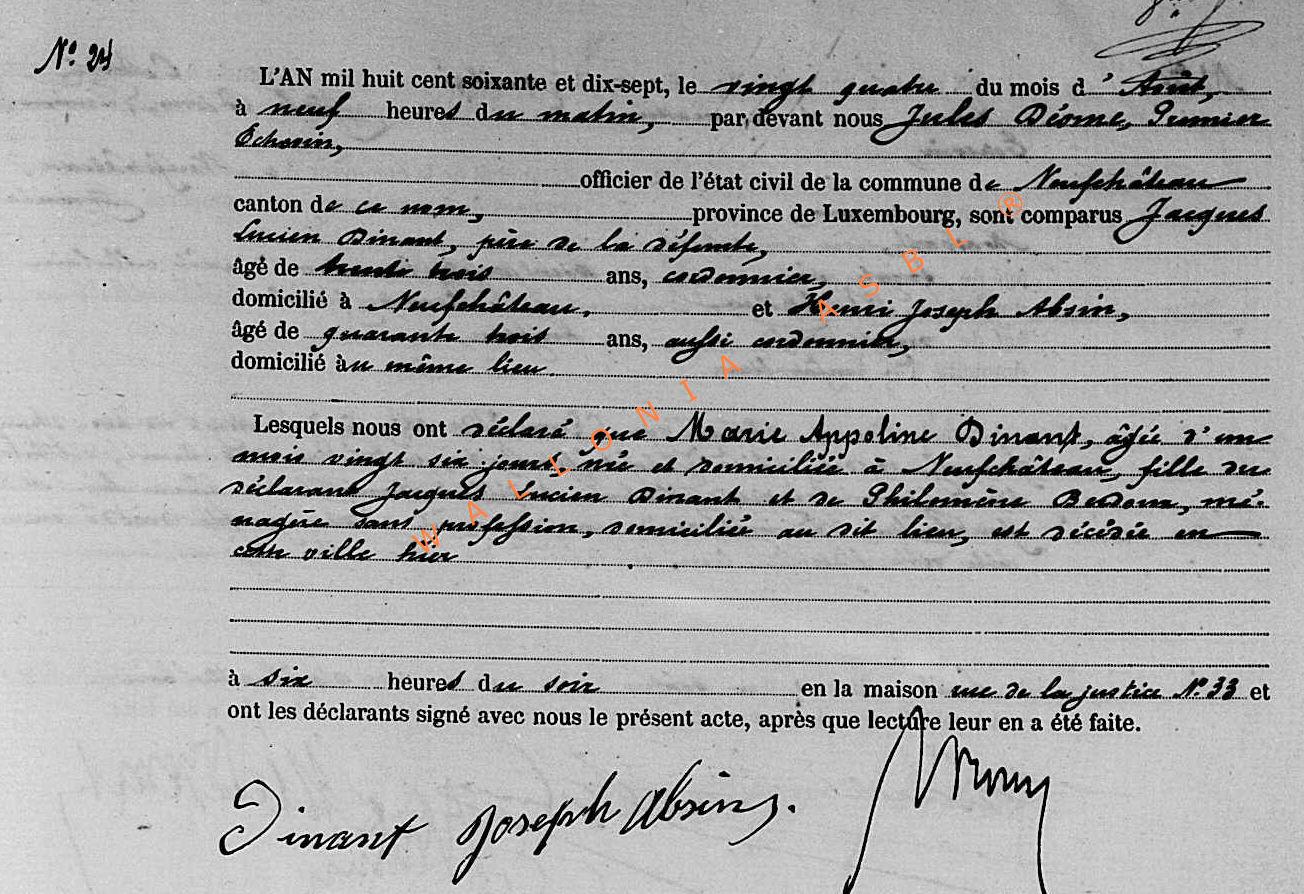 N° 24
L'AN mil huit cent soixante et dix-sept, le vingt quatre du mois d'Août,
à neuf heures du matin, par devant nous Jules Déome, Premier
Echevin,
officier de l'état civil de la commune de Neufchâteau
canton de ce nom, province de Luxembourg, sont comparus Jacques
Lucien Dinant, père de la défunte,
âgé de trente trois ans, cordonnier,
domicilié à Neufchâteau, et Henri Joseph Absin,
âgé de quarante trois ans, aussi cordonnier,
domicilié au même lieu
Lesquels nous ont déclaré que Marie Appoline Dinant, âgée d'un
mois vingt six jours née et domiciliée à Neufchâteau, fille du
déclarant Jacques Lucien Dinant et de Philomène mé-
nagère sans profession, domiciliée au dit lieu, est décédée en
cette ville hier
à six heures du soir en la maison rue de la justice N° 33 et
ont les déclarants signé avec nous le présent acte, après que lecture leur en a été faite.
Dinant Joseph Absin
WALLONIA ASBL ®